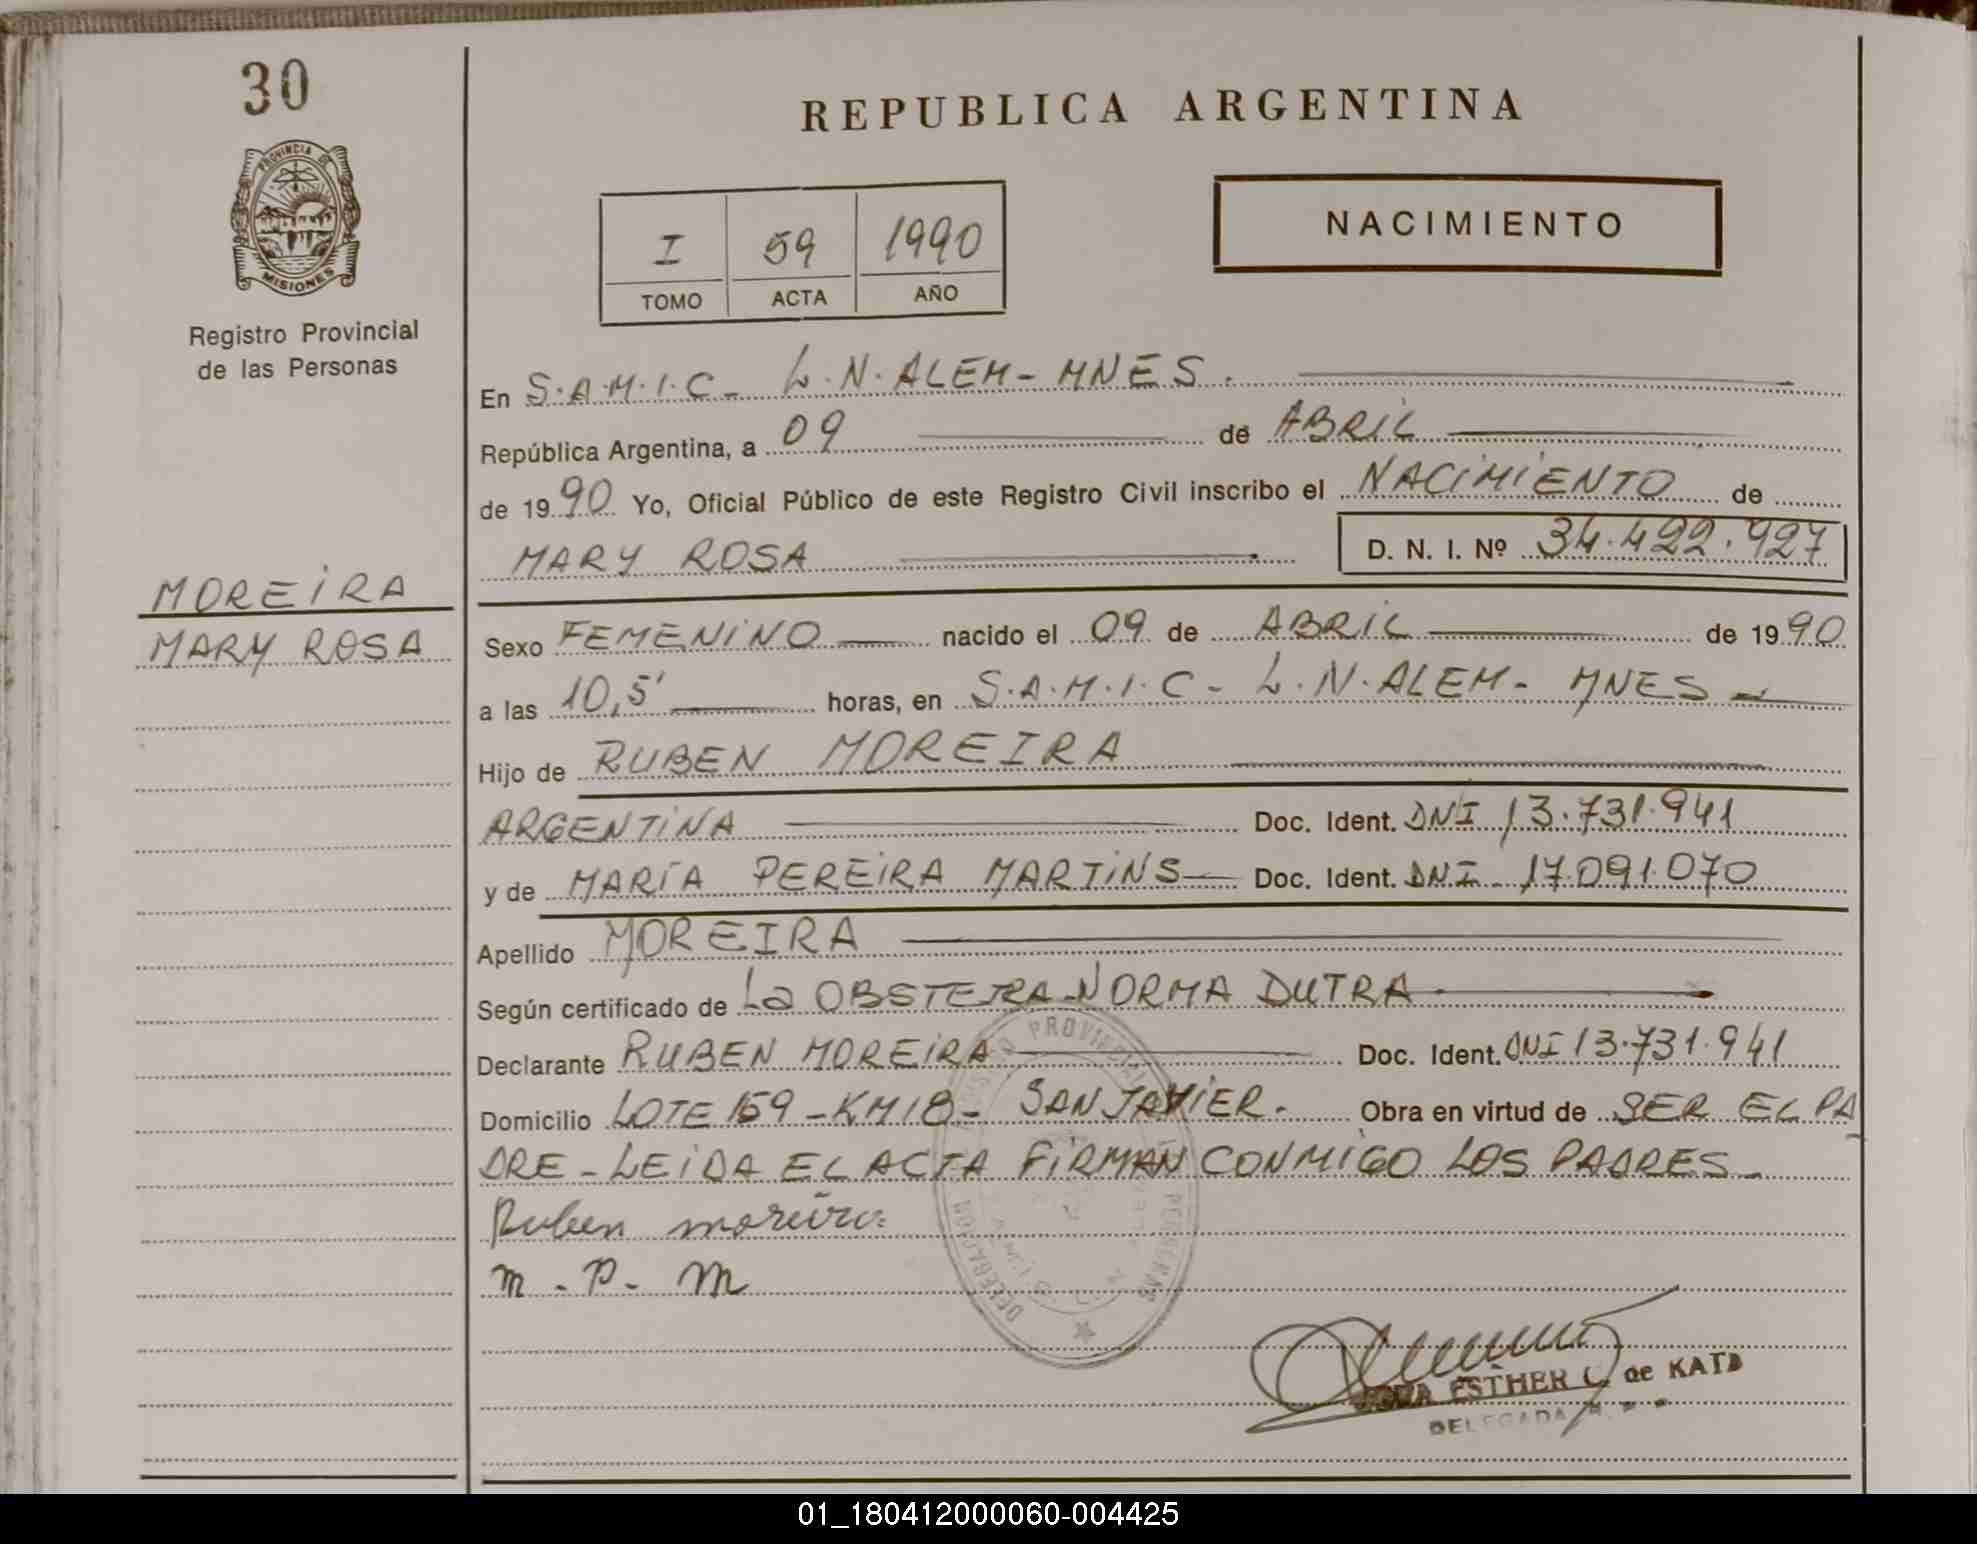 30
PROVINCIA DE
MISIONES
Registro Provincial
de las Personas
MOREIRA
MARY ROSA
REPUBLICA ARGENTINA
I 59 1990
TOMO ACTA AÑO
NACIMIENTO
En S.A.M.I.C - L.N.ALEM - MNES.
República Argentina, a 09 de ABRIL
de 1990 Yo, Oficial Público de este Registro Civil inscribo el NACIMIENTO de
MARY ROSA D. N. I. Nº 34.422.927
Sexo FEMENINO nacido el 09 de ABRIL de 1990
a las 10,5' horas, en S.A.M.I.C - L.N.ALEM - MNES
Hijo de RUBEN MOREIRA
ARGENTINA Doc. Ident. DNI 13.731.941
y de MARÍA PEREIRA MARTINS Doc. Ident. DNI - 17.091.070
Apellido MOREIRA
Según certificado de La OBSTETRA NORMA DUTRA
Declarante RUBEN MOREIRA Doc. Ident. DNI 13.731.941
Domicilio LOTE 159 - KM 18 - SAN JAVIER. Obra en virtud de SER EL PA
DRE - LEIDA EL ACTA FIRMAN CONMIGO LOS PADRES -
Ruben moreira
m - P - m
ESTHER C. de KATZ
DELEGADA
01_180412000060-004425